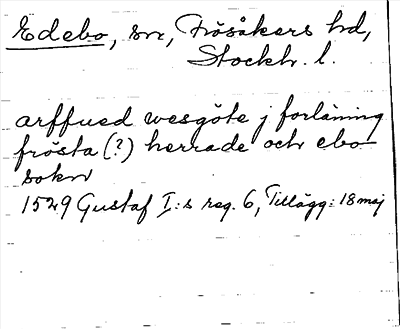 Edebo, sn, Frösåkers hd,
Stockh. l.
arffued wesgöte j forläning
frösta (?) herrade och ebo
sokn
1529 Gustaf I:s reg. 6, Tillägg: 18 maj